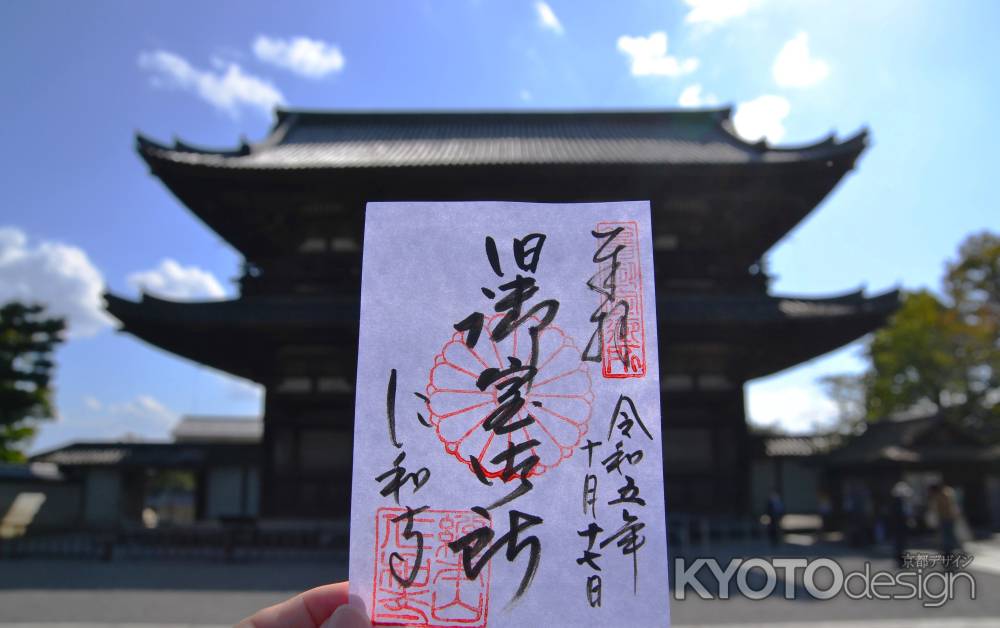 奉拝
令和五年
十月十七日
旧御室御所
仁和寺
京都デザイン
KYOTOdesign